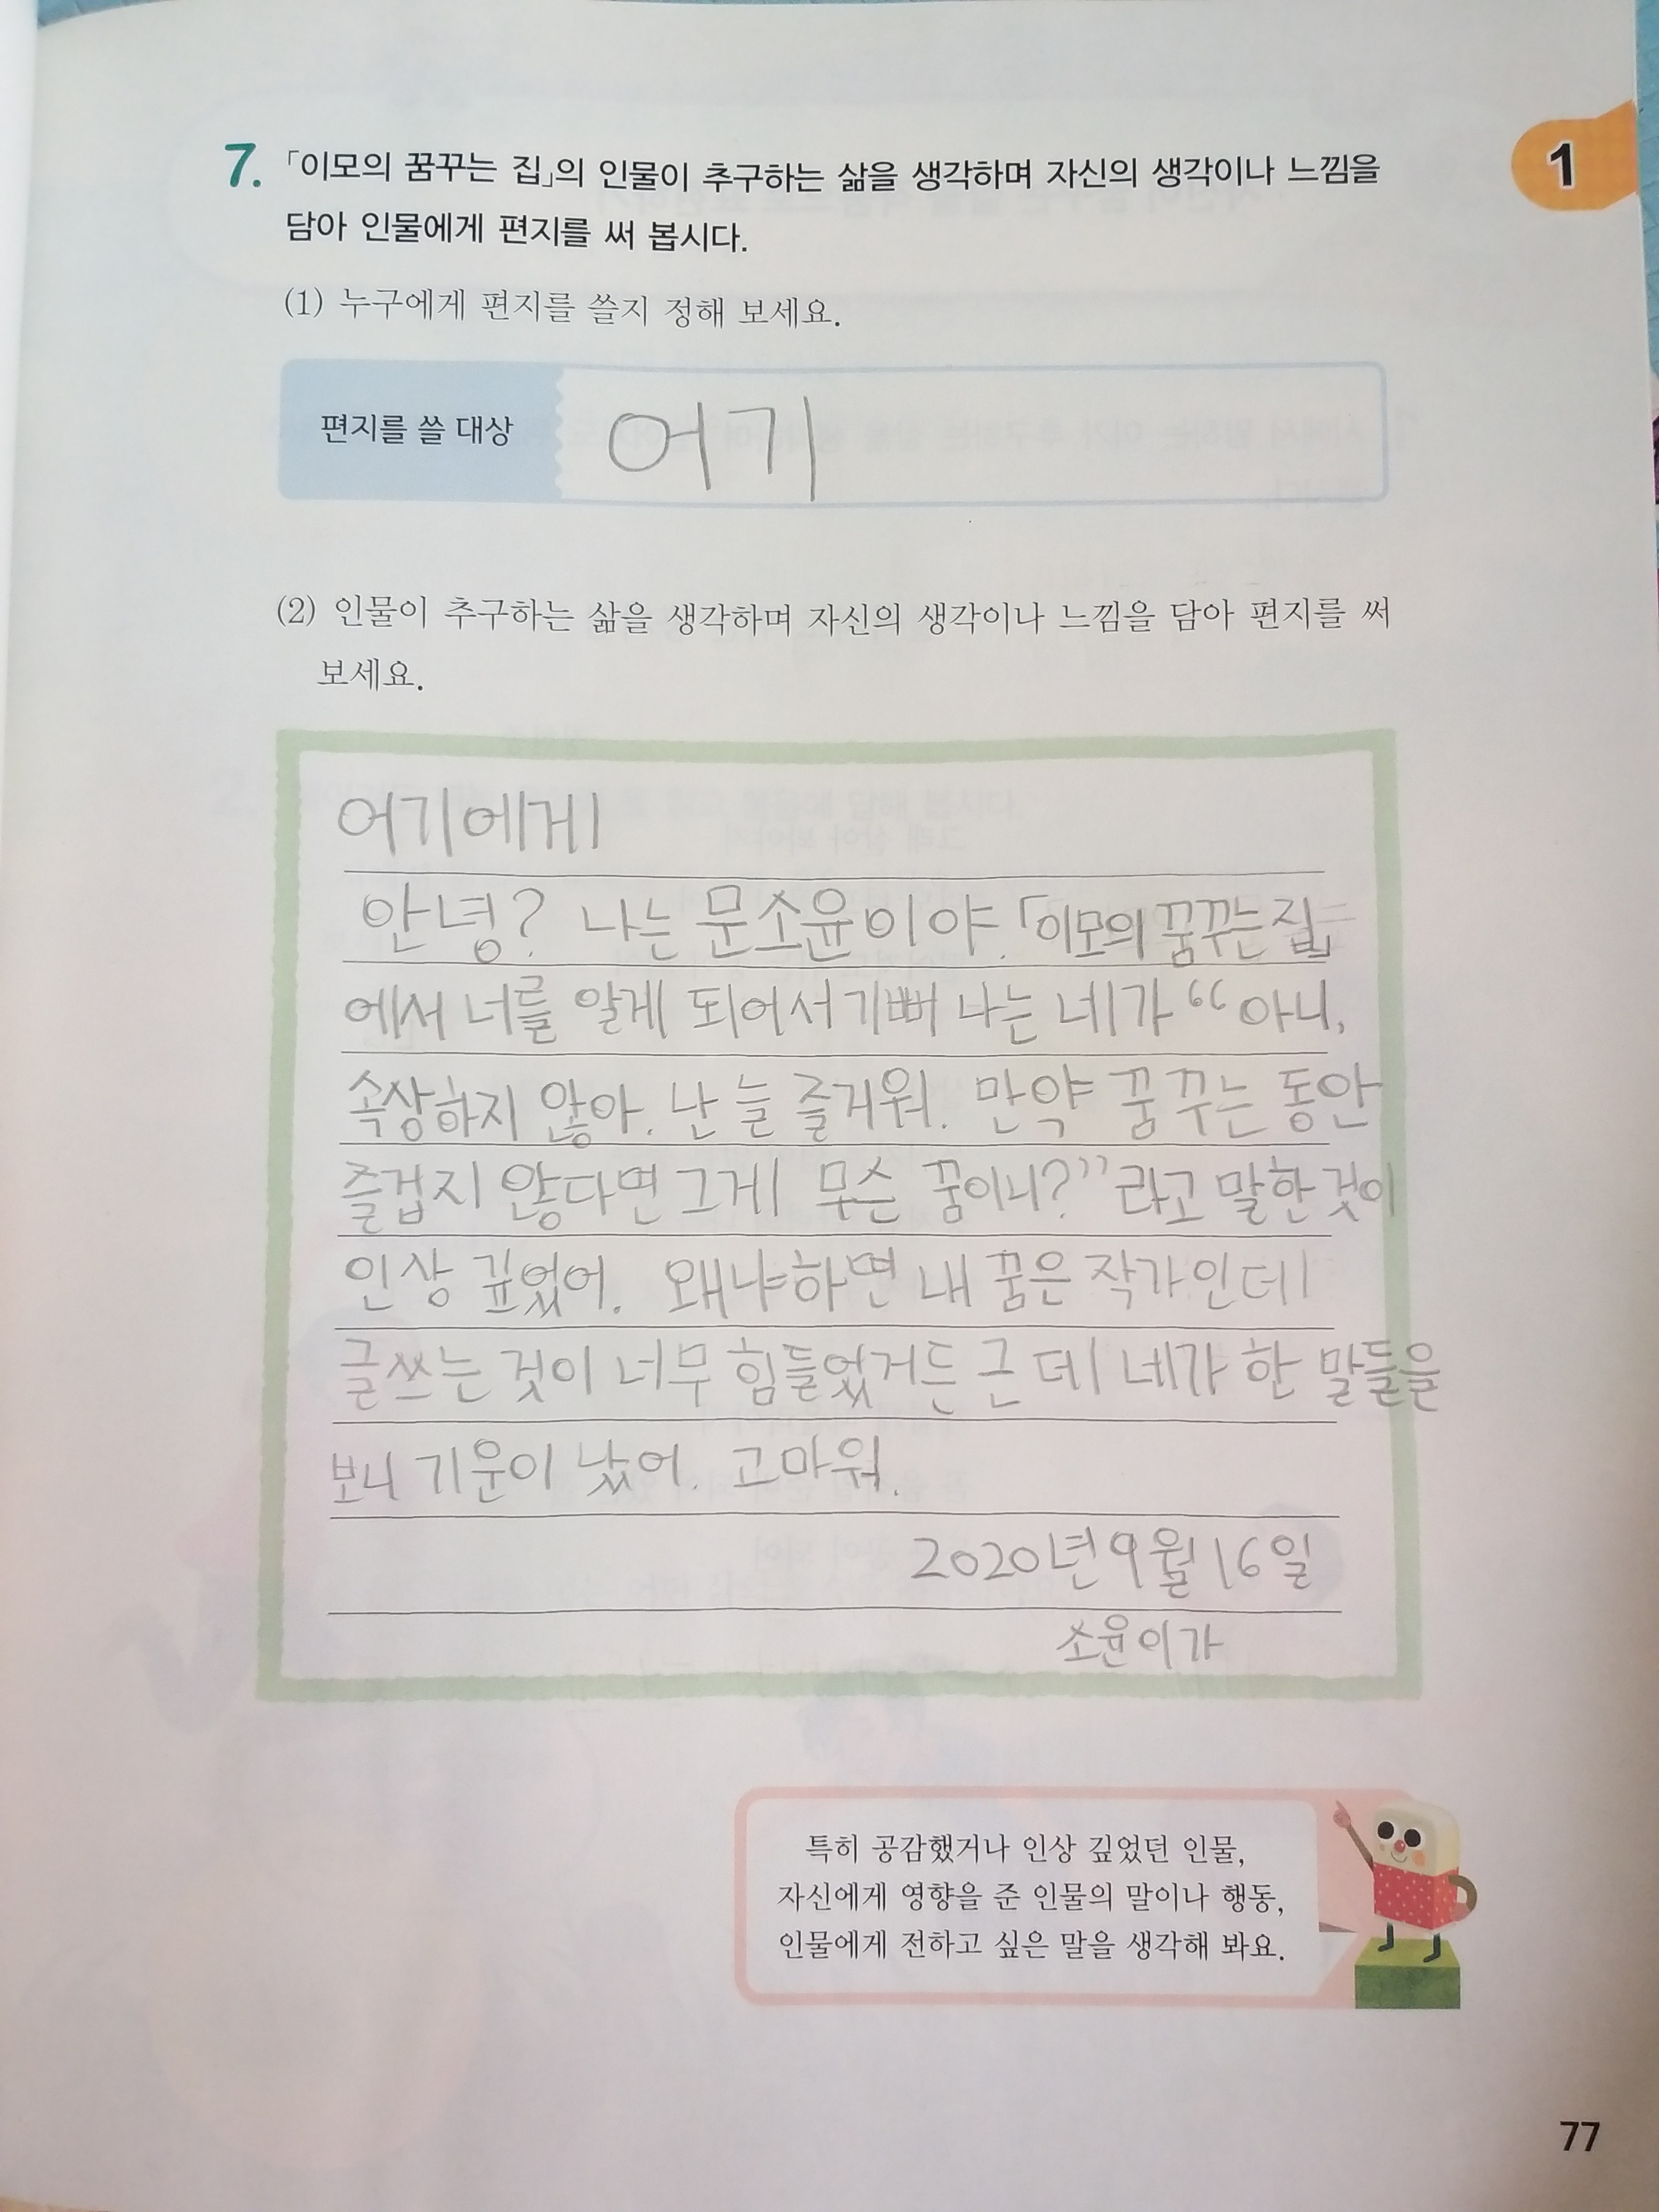 7. 「이모의 꿈꾸는 집」의 인물이 추구하는 삶을 생각하며 자신의 생각이나 느낌을
담아 인물에게 편지를 써 봅시다.
1
(1) 누구에게 편지를 쓸지 정해 보세요.
편지를 쓸 대상 어기
(2) 인물이 추구하는 삶을 생각하며 자신의 생각이나 느낌을 담아 편지를 써
보세요.
어기에게
안녕? 나는 문소윤이야. 「이모의 꿈꾸는 집」
에서 너를 알게 되어서 기뻐 나는 네가 “아니,
속상하지 않아. 난 늘 즐거워. 만약 꿈꾸는 동안
즐겁지 않다면 그게 무슨 꿈이니?”라고 말한 것이
인상 깊었어. 왜냐하면 내 꿈은 작가인데
글쓰는 것이 너무 힘들었거든 근데 네가 한 말들을
보니 기운이 났어. 고마워.
2020년 9월 16일
소윤이가
특히 공감했거나 인상 깊었던 인물,
자신에게 영향을 준 인물의 말이나 행동,
인물에게 전하고 싶은 말을 생각해 봐요.
77